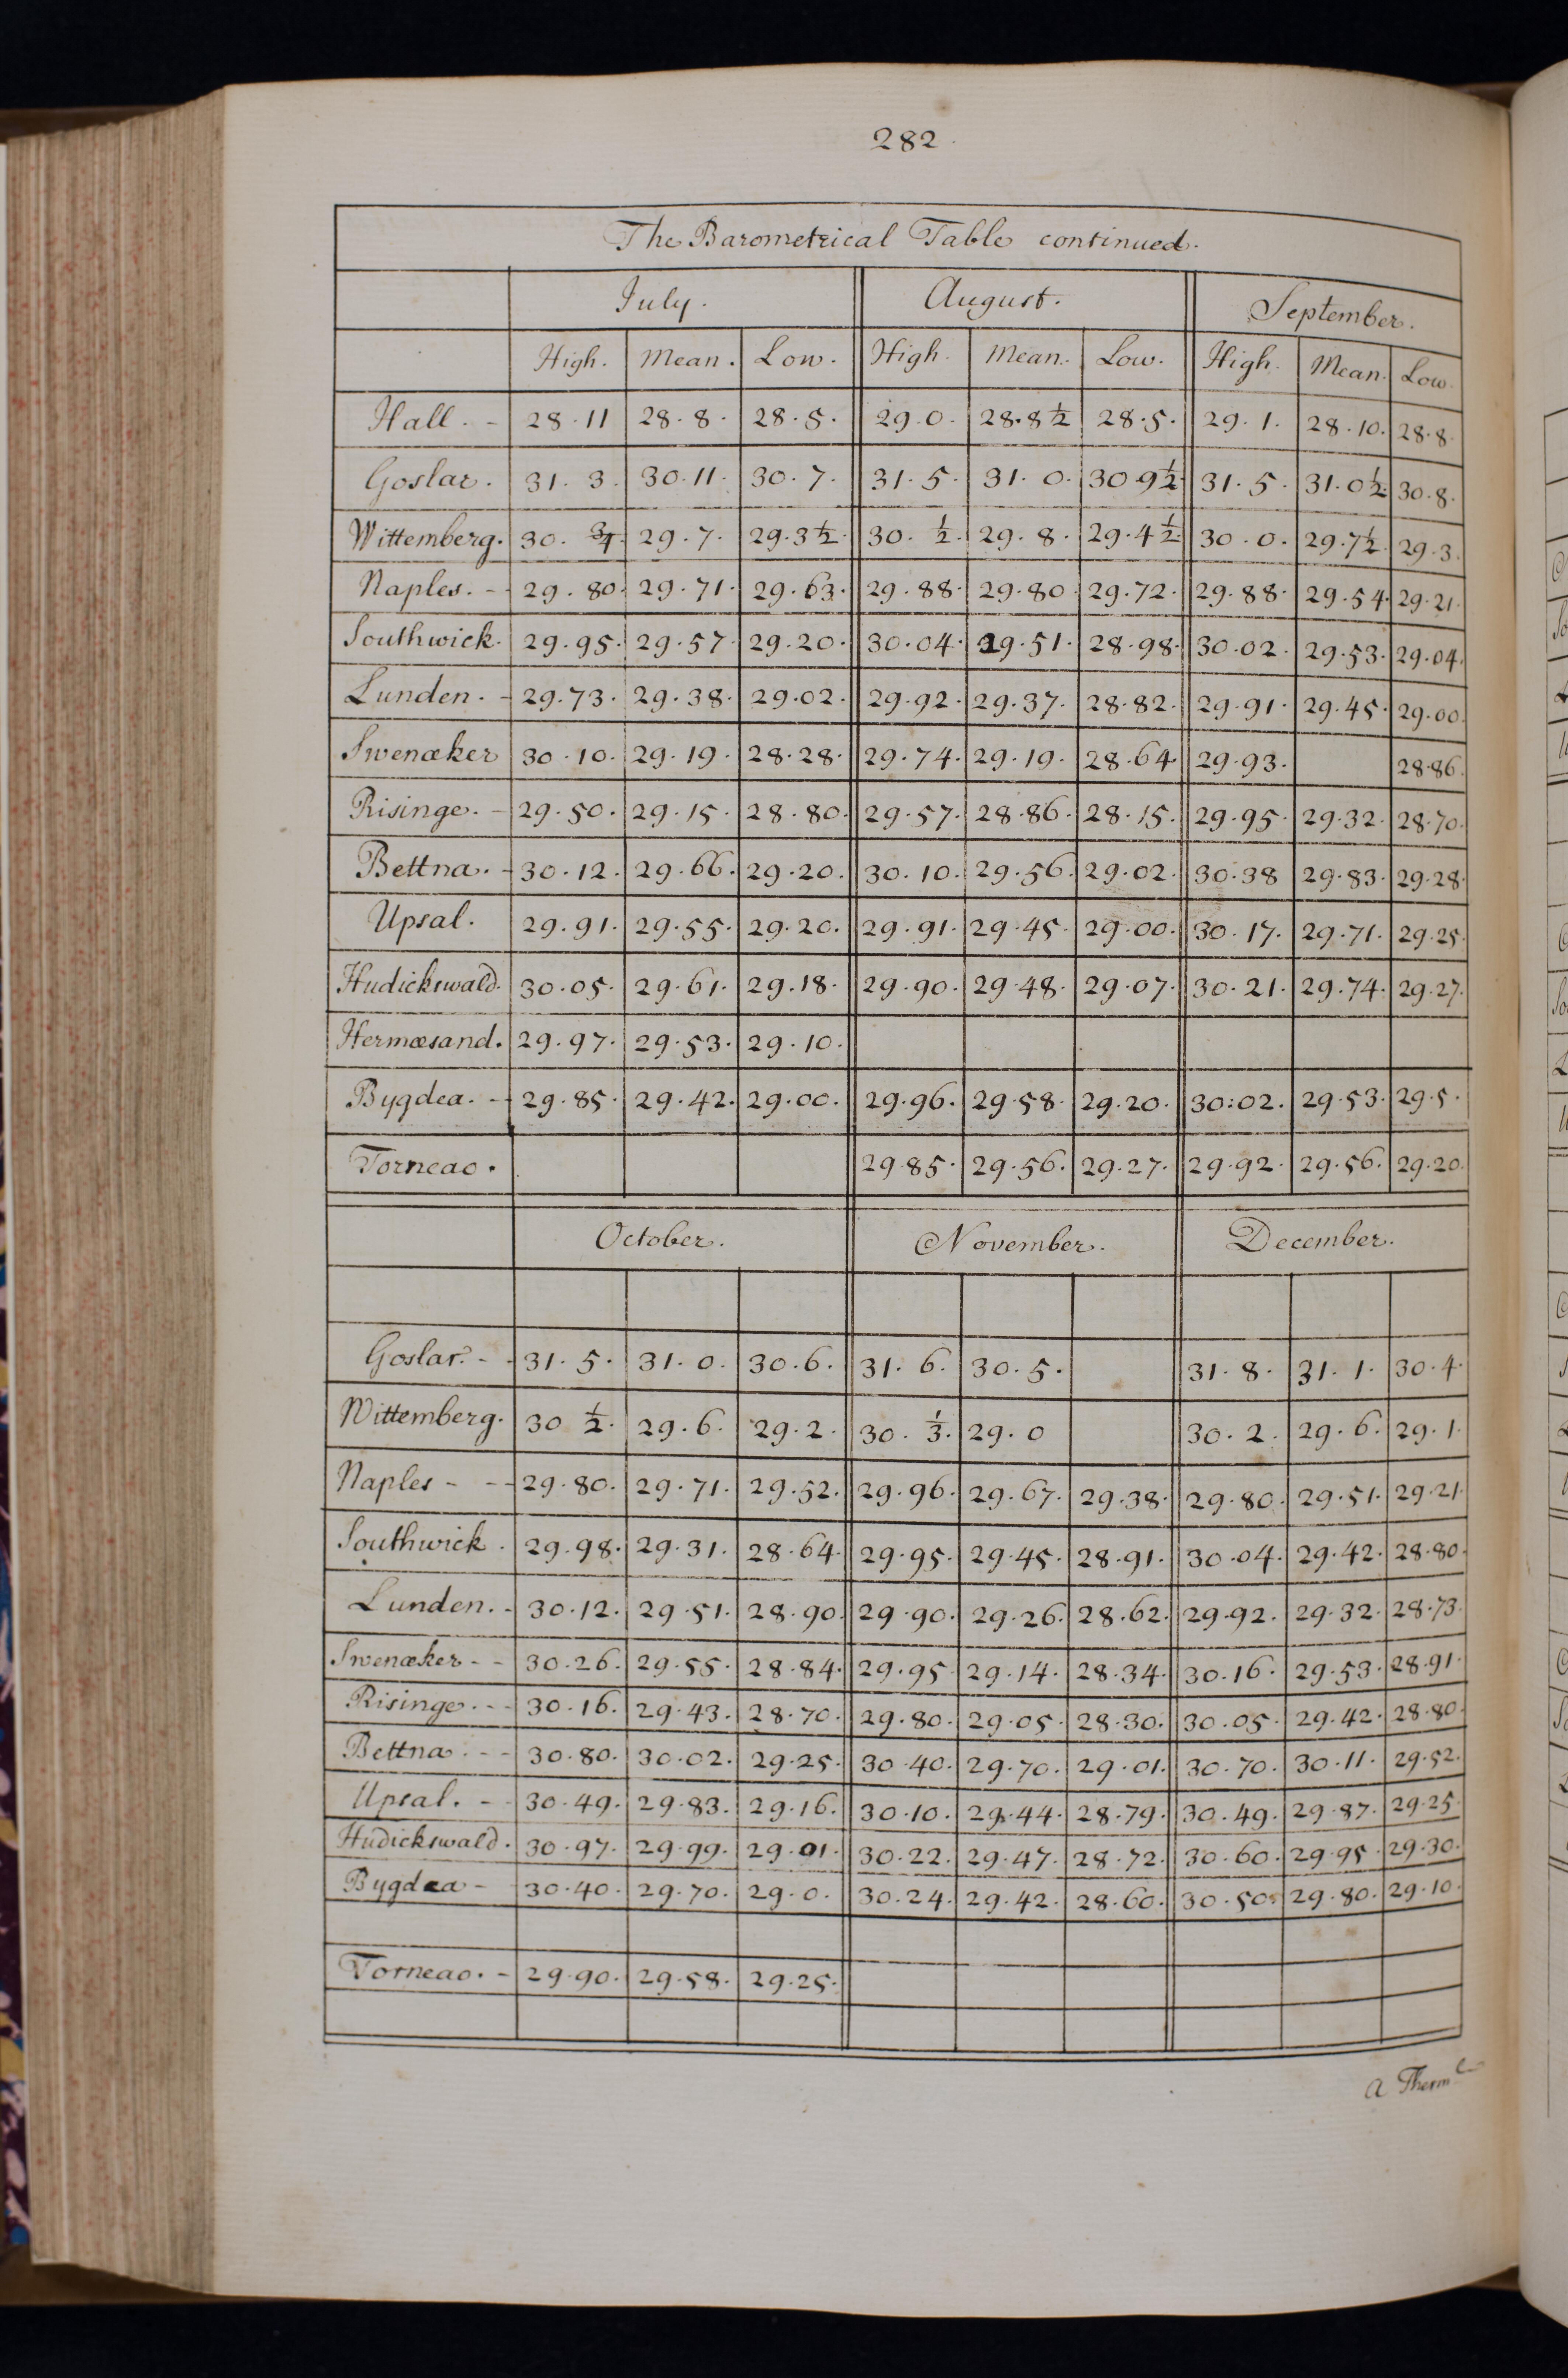 282.
The Barometrical Table continued.
July. August. September.
High. Mean. Low. High. Mean. Low. High. Mean. Low.
Hall. - 28.11 28.8. 28.5. 29.0. 28.8½ 28.5. 29.1. 28.10. 28.8.
Goslar. 31.3. 30.11. 30.7. 31.5. 31.0. 30 9½ 31.5. 31.0½ 30.8.
Wittemberg. 30. ¾. 29.7. 29.3½ 30. ½. 29.8. 29.4½ 30.0. 29.7½ 29.3.
Naples. - 29.80. 29.71. 29.63. 29.88. 29.80. 29.72. 29.88. 29.54. 29.21.
Southwick. 29.95. 29.57. 29.20. 30.04. 29.51. 28.98. 30.02. 29.53. 29.04.
Lunden. - 29.73. 29.38. 29.02. 29.92. 29.37. 28.82. 29.91. 29.45. 29.00.
Swenæker 30.10. 29.19. 28.28. 29.74. 29.19. 28.64 29.93. 28.86.
Risinge. - 29.50. 29.15. 28.80. 29.57. 28.86. 28.15. 29.95. 29.32. 28.70.
Bettna. - 30.12. 29.66. 29.20. 30.10. 29.56. 29.02. 30.38 29.83. 29.28.
Upsal. 29.91. 29.55. 29.20. 29.91. 29.45. 29.00. 30.17. 29.71. 29.25.
Hudickswald. 30.05. 29.61. 29.18. 29.90. 29.48. 29.07. 30.21. 29.74. 29.27.
Hermœsand. 29.97. 29.53. 29.10.
Bygdea. - 29.85. 29.42. 29.00. 29.96. 29.58. 29.20. 30:02. 29.53. 29.5.
Torneao. 29.85. 29.56. 29.27. 29.92. 29.56. 29.20.
October. November. December.
Goslar. - - 31.5. 31.0. 30.6. 31.6. 30.5. 31.8. 31.1. 30.4.
Wittemberg. 30 ½. 29.6. 29.2. 30. ⅓. 29.0 30.2. 29.6. 29.1.
Naples - - - 29.80. 29.71. 29.52. 29.96. 29.67. 29.38. 29.80. 29.51. 29.21.
Southwick. 29.98. 29.31. 28.64. 29.95. 29.45. 28.91. 30.04. 29.42. 28.80.
Lunden. - 30.12. 29.51. 28.90. 29.90. 29.26. 28.62. 29.92. 29.32. 28.73.
Swenæker - - 30.26. 29.55. 28.84. 29.95 29.14. 28.34. 30.16. 29.53. 28.91.
Risinge. - - 30.16. 29.43. 28.70. 29.80. 29.05. 28.30. 30.05. 29.42. 28.80.
Bettna. - - 30.80. 30.02. 29.25. 30.40. 29.70. 29.01. 30.70. 30.11. 29.52.
Upsal. - - 30.49. 29.83. 29.16. 30.10. 29.44. 28.79. 30.49. 29.87. 29.25.
Hudickswald. 30.97. 29.99. 29.01. 30.22. 29.47. 28.72. 30.60. 29.95 29.30.
Bygdea - 30.40. 29.70. 29.0. 30.24. 29.42. 28.60. 30.50. 29.80. 29.10.
Torneao. - 29.90. 29.58. 29.25.
a Therm